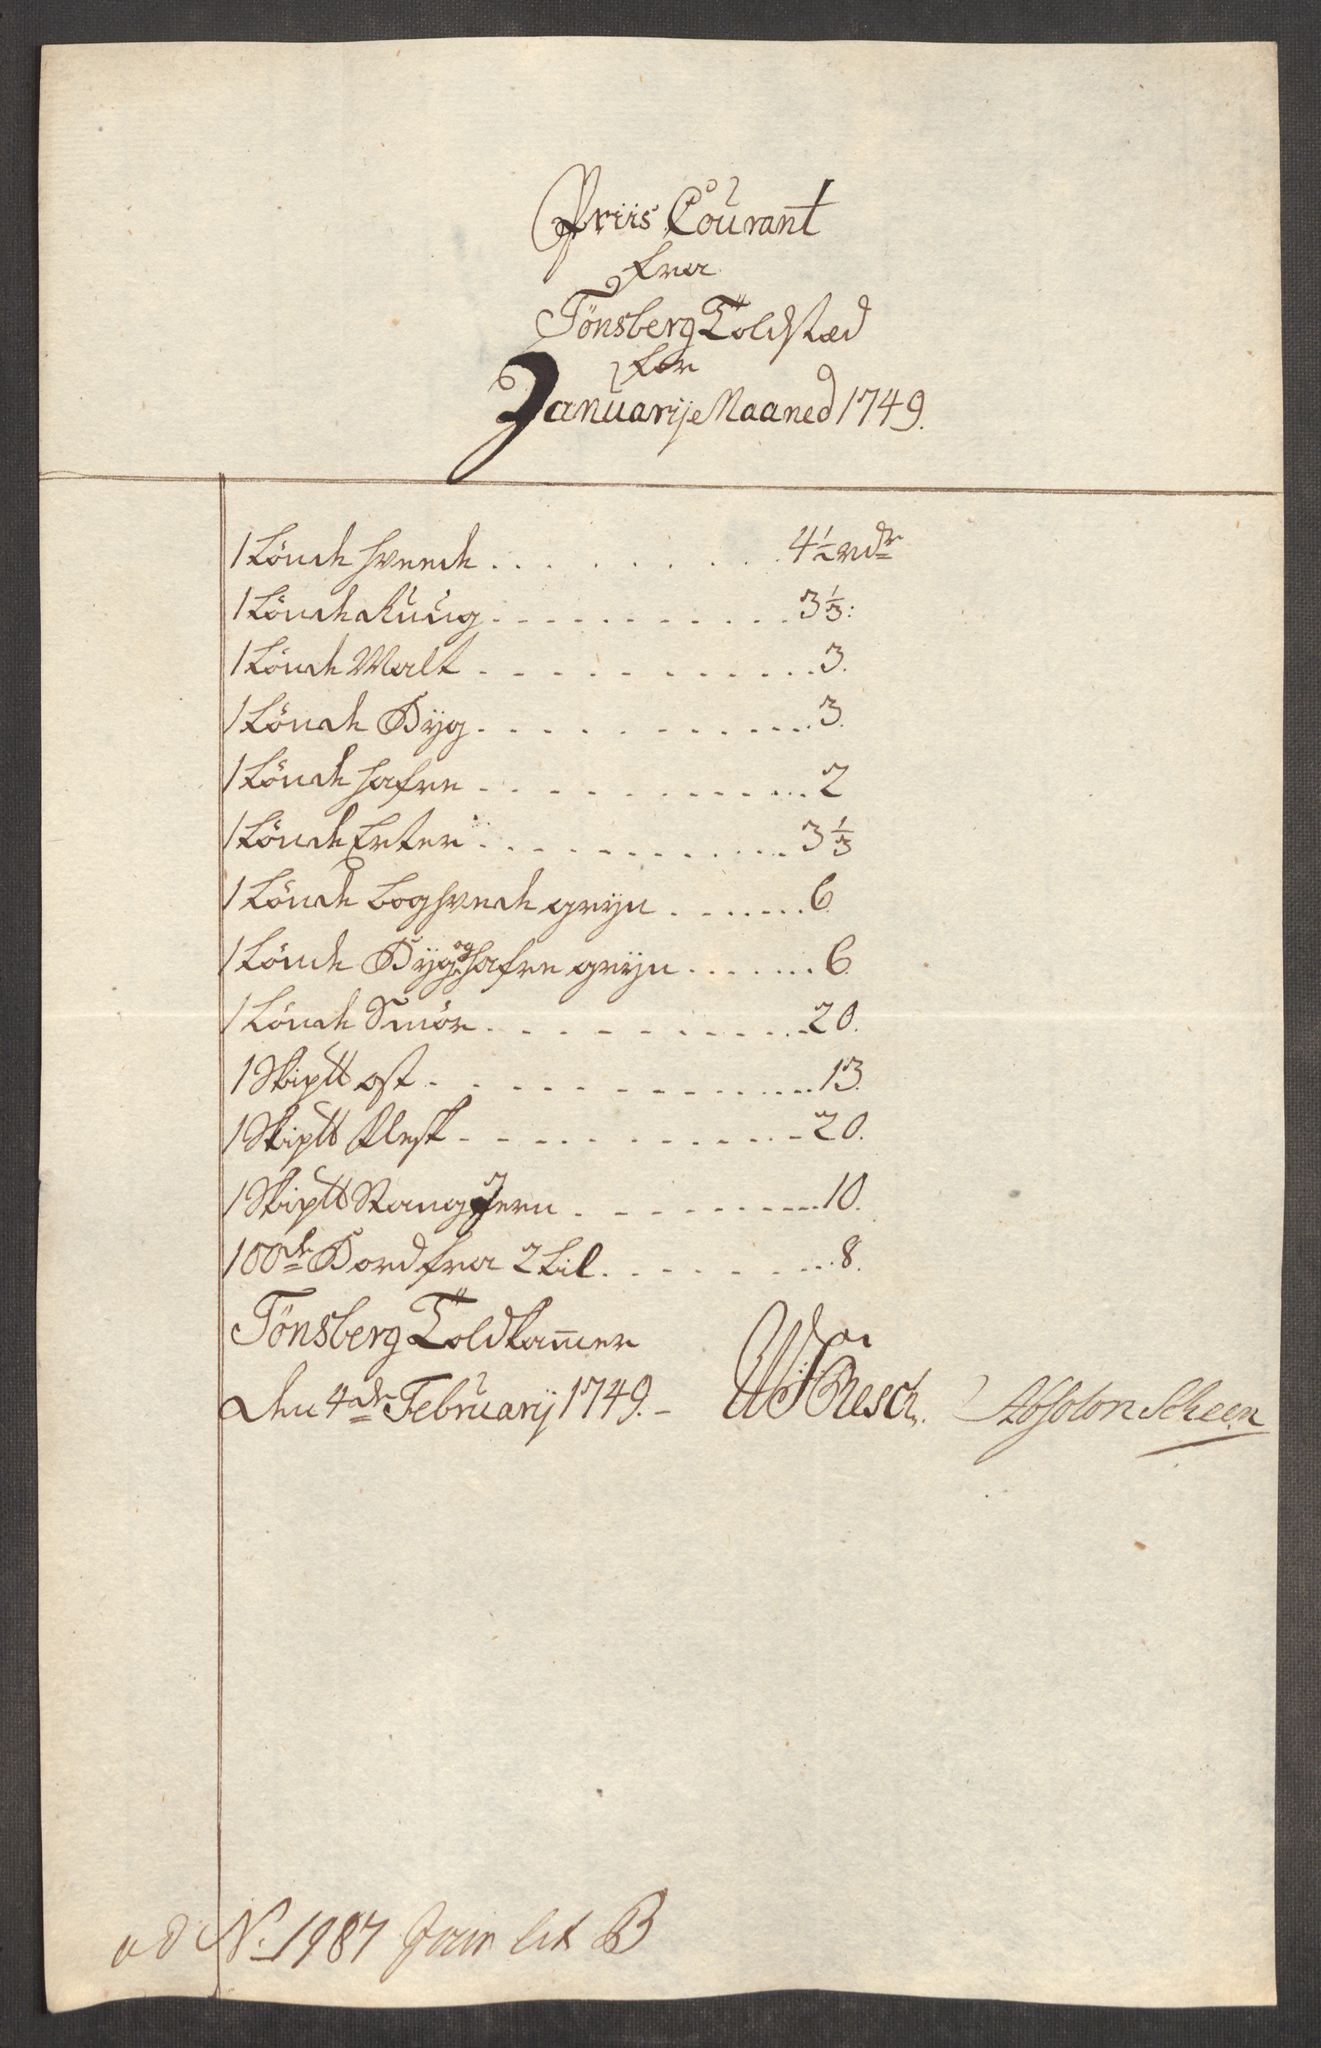 Priis Courant
fra
Tönsberg Toldstæd
for
Januarije Maaned 1749.
1 tönde hvede . . . . . . . . . 4½ rdr
1 tönde Ruug . . . . . . . . . 3⅓:
1 tönde Malt . . . . . . . . . 3.
1 tönde Byg . . . . . . . . . 3.
1 tönde hafre . . . . . . . . . 2
1 tönde Erter . . . . . . . . . 3⅓
1 tönde boghvede gryn . . . . . . 6
1 tönde Byg og hafre gryn . . . . . . 6
1 tönde Smör . . . . . . . . . 20.
1 Skiptt ost . . . . . . . . . 13.
1 Skiptt Flesk . . . . . . . . . 20.
1 Skiptt Stang Jern . . . . . . . . . 10.
100de Bord fra 2 til . . . . . . . . . 8.
Tönsberg Toldkammer
den 4de Februarij 1749. - Resch. Absolon Scheen
ad No. 1987 lit B